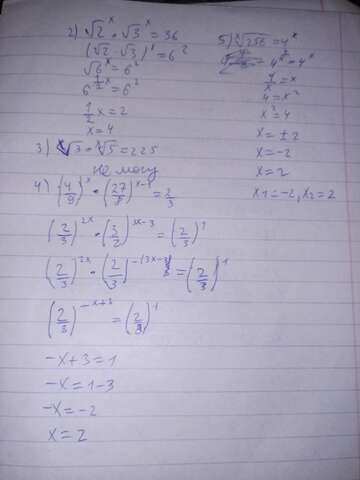 2) √2^x * √3^x = 36
(√2 · √3)^x = 6^2
√6^x = 6^2
6^(1/2 x) = 6^2
1/2 x = 2
x = 4
3) ^x√3 * ^x√5 = 225
не могу
4) (4/9)^x * (27/8)^(x-1) = 2/3
(2/3)^(2x) * (3/2)^(3x-3) = (2/3)^1
(2/3)^(2x) · (2/3)^(-(3x-3)) = (2/3)^1
(2/3)^(-x+3) = (2/3)^1
-x+3=1
-x=1-3
-x=-2
x=2
5) ^x√256 = 4^x
= 4^x
4/x = x
4 = x^2
x^2 = 4
x = ±2
x = -2
x = 2
x1 = -2, x2 = 2